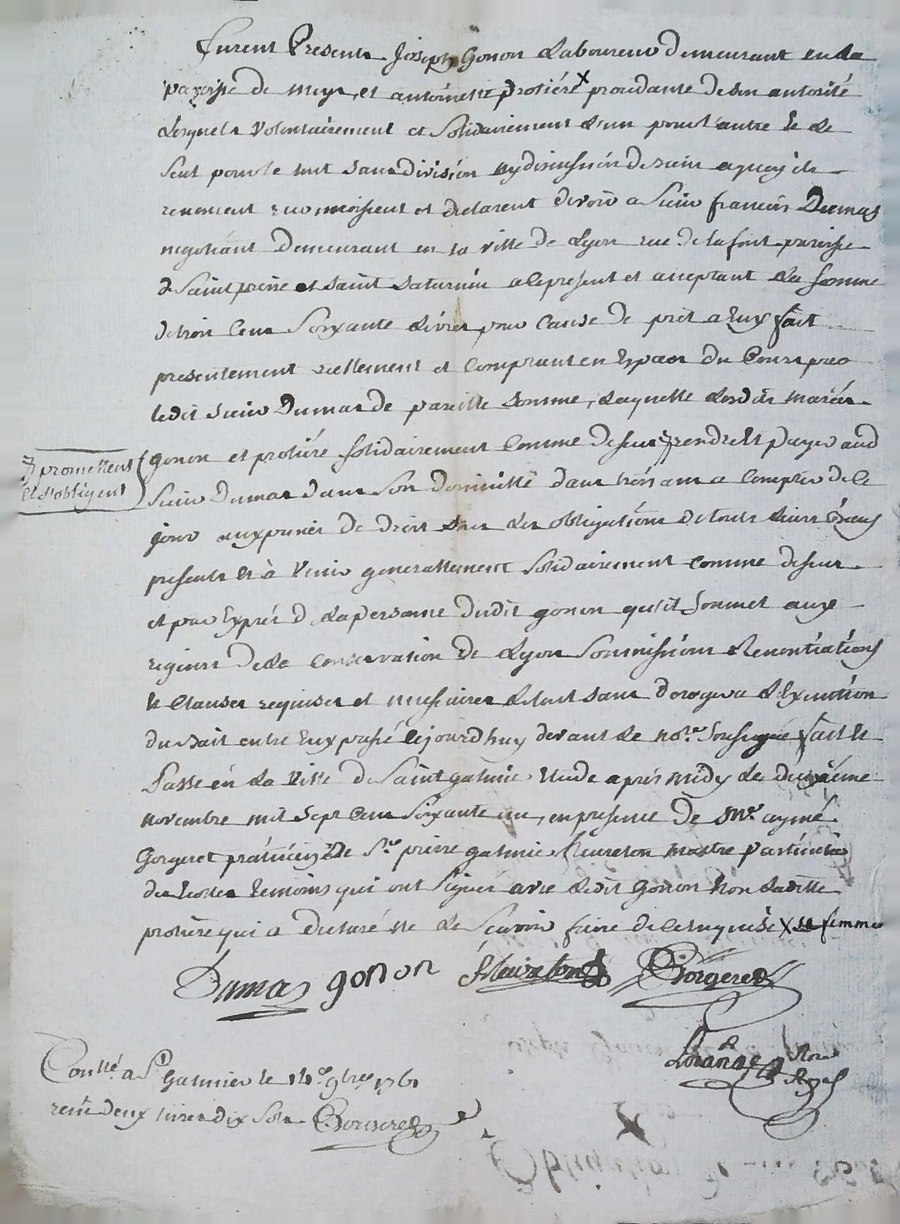 Furent Presents Joseph Gonon Laboureur demeurant en la
paroisse de meys, et antoinette protière x procedante de son autorité
Lesquels volontairement et solidairement l'un pour l'autre et le
seul pour le tout sans division ny dimission de rien a quoy ils
renoncent reconnoissent et declarent devoir a Sieur françois Dumas
negotiant demeurant en la ville de Lyon rue de la font paroisse
de Saint pierre et saint Saturnin a ce present et acceptant La somme
de trois Cent Soixante Livres pour Cause de pret a Eux fait
presentement reellement et Comptant en Especes du Cours par
ledit Sieur Dumas de pareille Somme, Laquelle Lesdits mariés
gonon et protière solidairement comme dessus rendre et payer aud
promettent
et s'obligent
Sieur Dumas dans son domicille dans trois ans a Compter de ce
jour aux peines de droit sous Les obligations de touts Leurs Biens
presents et à Venir generallement Solidairement comme dessus
et par Exprés de La personne dudit gonon qu'il Soumet aux
rigeurs de la Conservation de Lyon Soumissions Renontiations
et Clauses requises et necessaires Le tout sans deroger a L'Exécution
du bait entre Eux passé cejourdhuy devant Le no.re soussigné fait et
Passé en La Ville de Saint galmier Etude aprés midy Le deuxième
novembre mil Sept Cent Soixante un, en presence de M.r aymé
Gorgeret praticien et de S.r pierre galmier fleureton Maitre Particulier
des Ecoles temoins qui ont Signés avec Ledit Gonon Non Laditte
protière qui a declaré ne Le Scavoir faire de ce enquise x sa femme
Dumas gonon fleureton Gorgeret
Contlé a S.t Galmier le 14.e 9bre 1761
reçu deux livres dix Sols Gorgeret